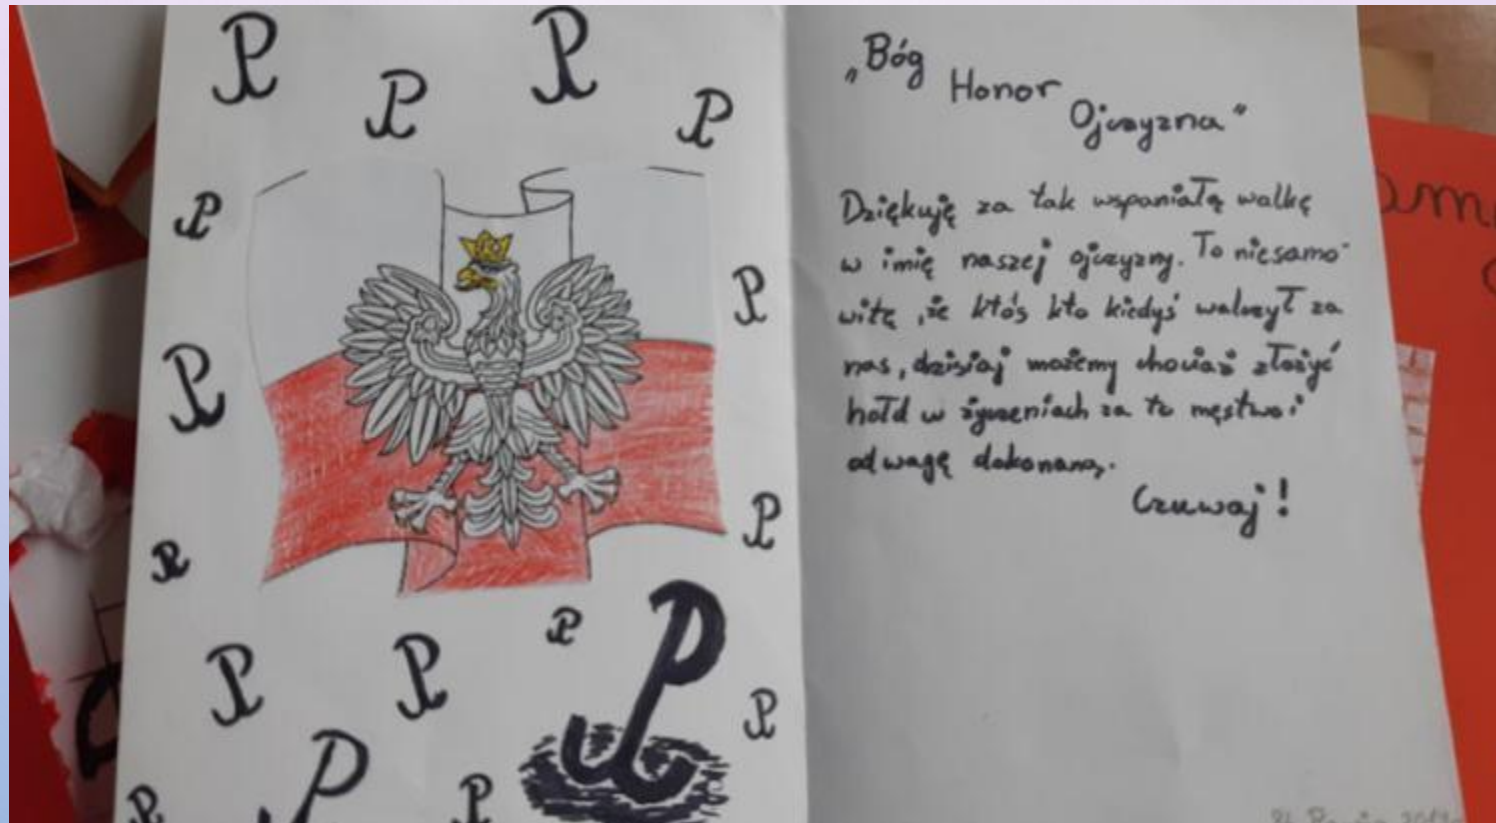 „Bóg
Honor
Ojczyzna"
Dziękuję za tak wspaniałą walkę
w imię naszej ojczyzny. To niesamo-
witę, że ktoś kto kiedyś walczył za
nas, dzisiaj możemy chociaż złożyć
hołd w życzeniach za to męstwo i
odwagę dokonaną.
Czuwaj!